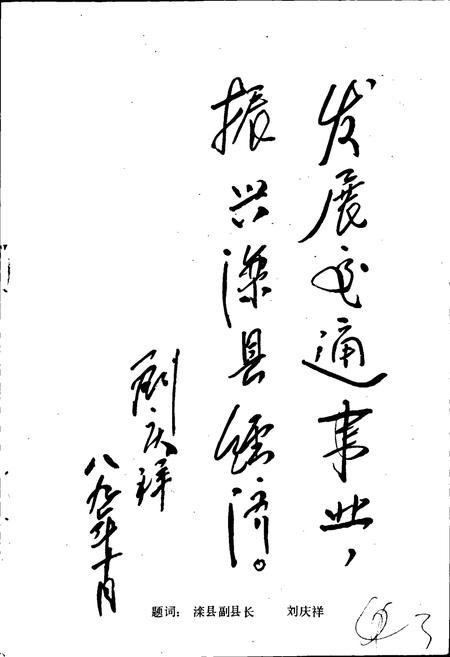 发展交通事业，
振兴滦县经济。
刘庆祥
八九年十月
题词：滦县副县长 刘庆祥